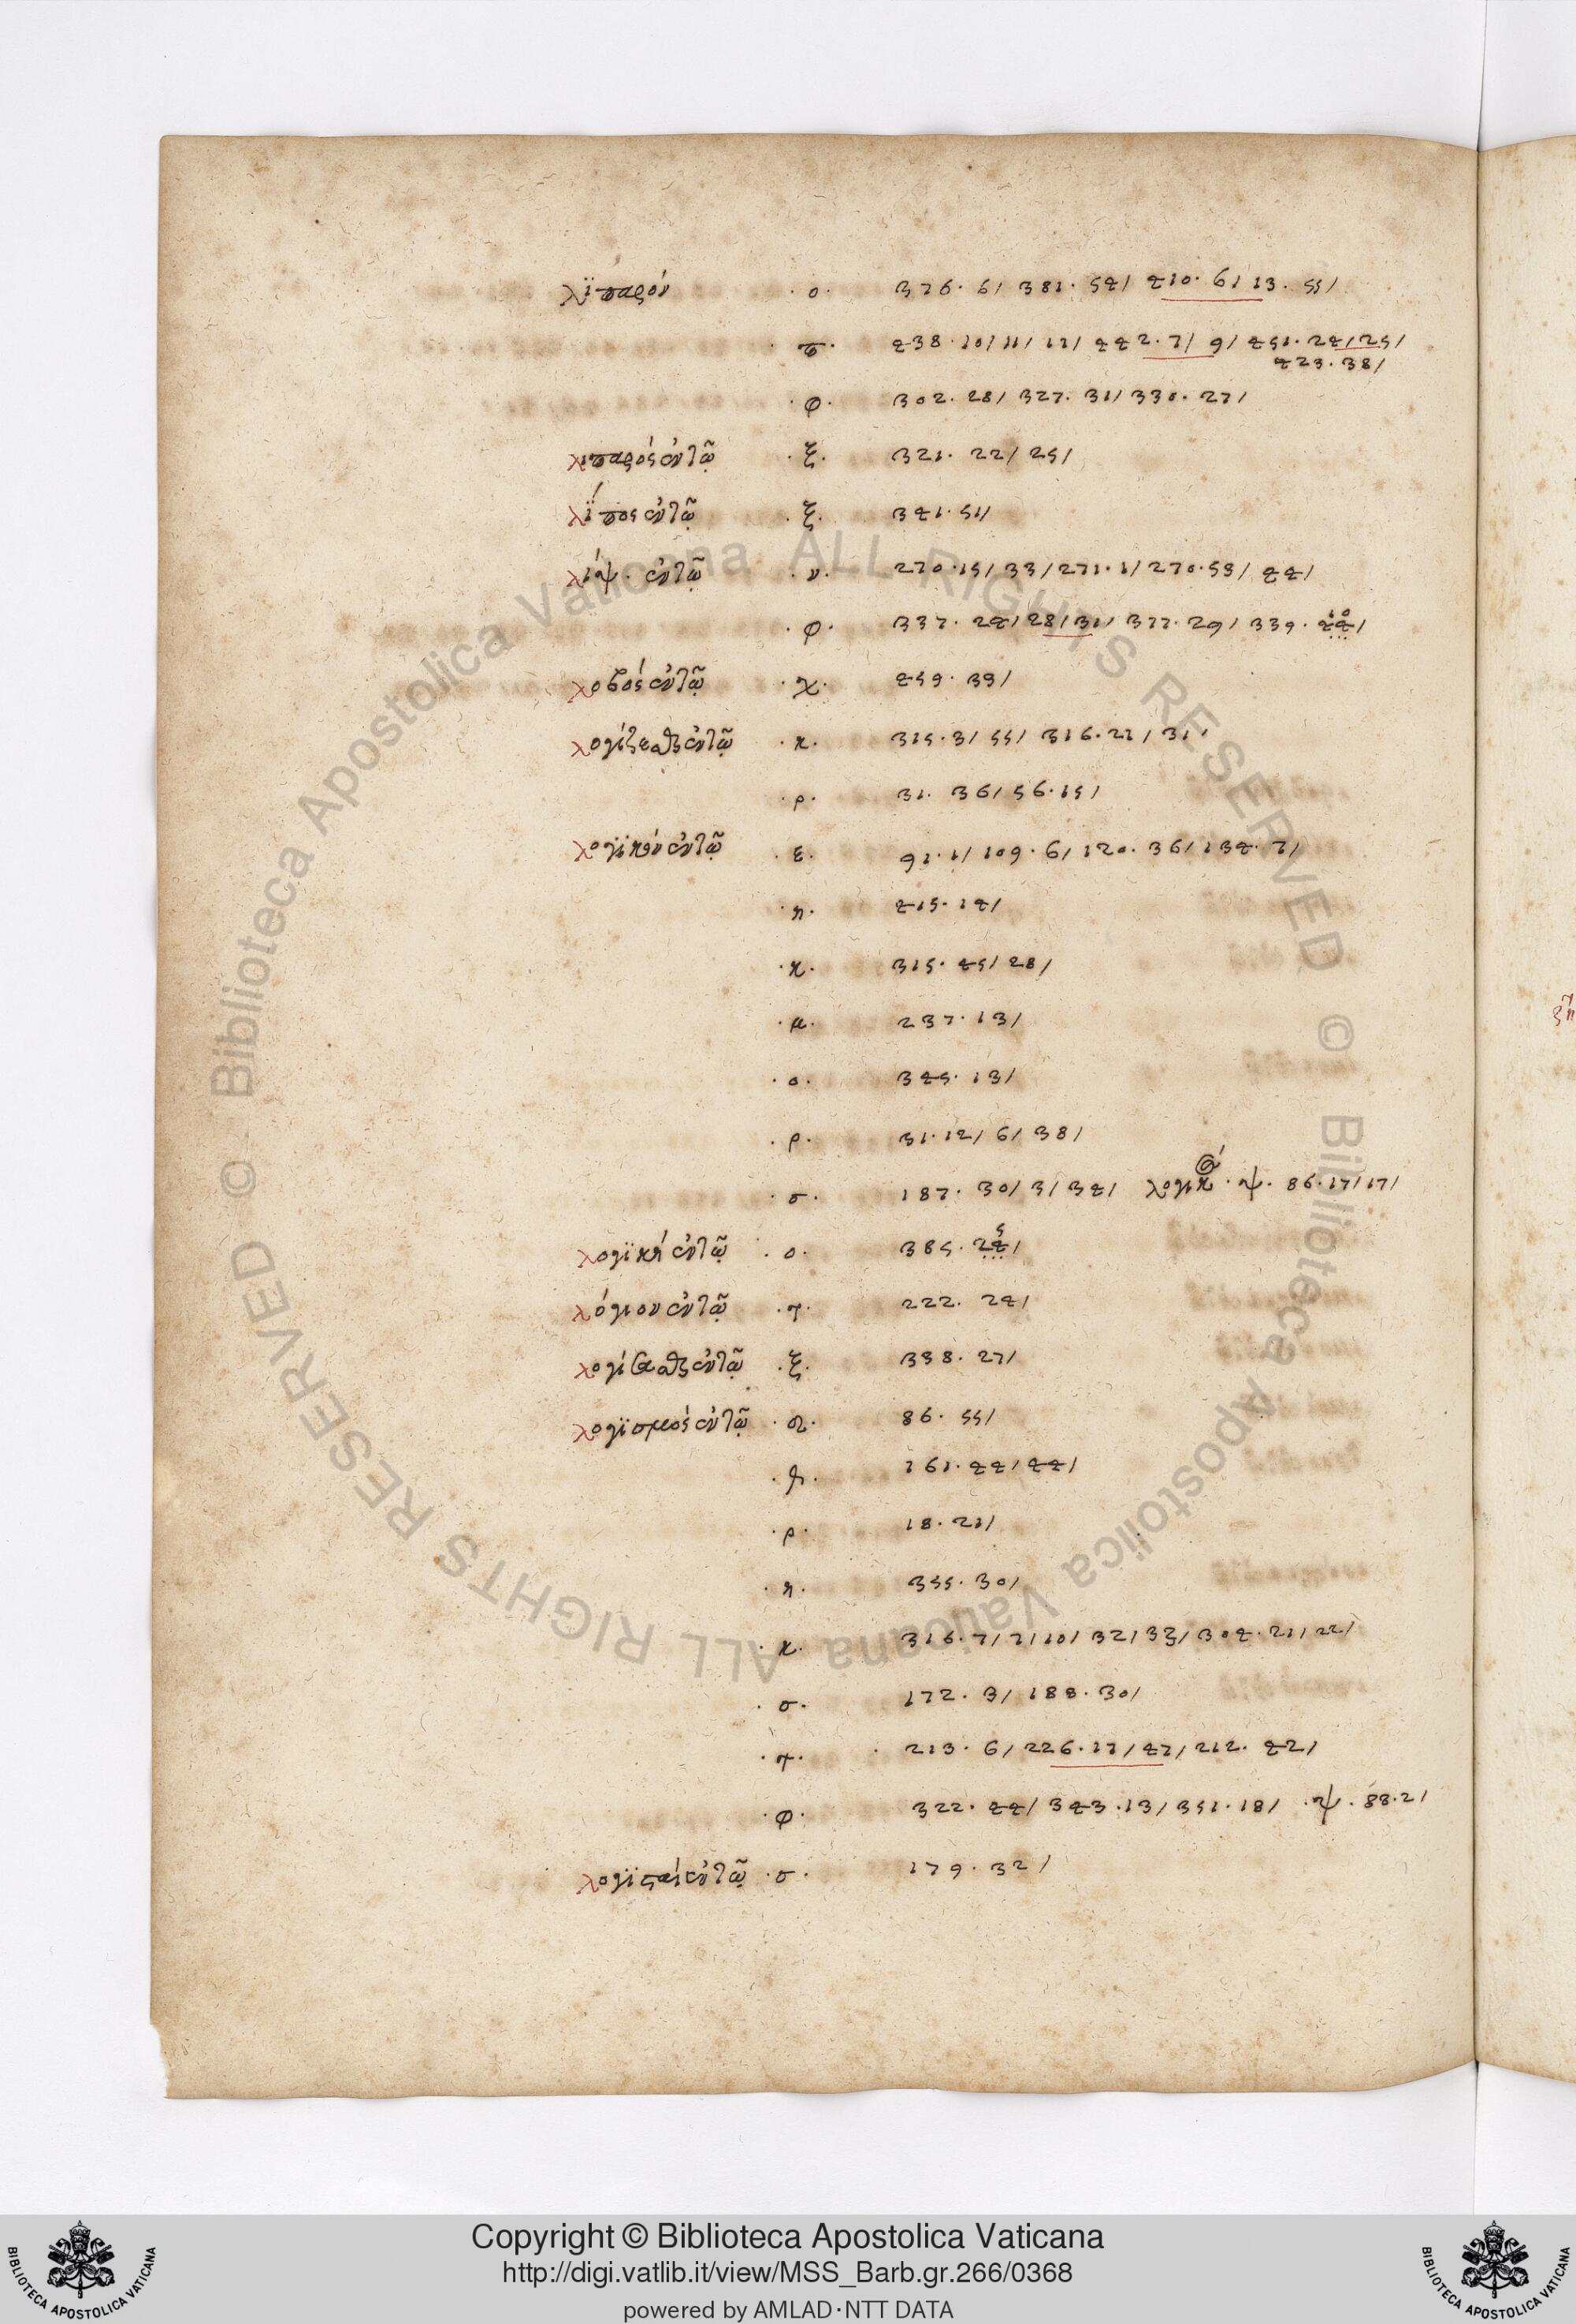 λϊπαρόν · ο · 376 · 6 / 381 · 54 / 410 · 6 / 13 · 55 /
· π · 438 · 10 / 11 / 12 / 442 · 7 / 9 / 451 · 24 / 25 /
423 · 38 /
· φ · 302 · 28 / 327 · 31 / 330 · 27 /
λιπαρός ἐν τῶ · ξ · 321 · 22 / 25 /
λΐπος ἐν τῶ · ξ · 341 · 51 /
λίψ · ἐν τῶ · ν · 270 · 15 / 33 / 271 · 1 / 270 · 53 / 44 /
· φ · 337 · 24 / 28 / 31 / 377 · 29 / 339 · 44 /
λοβός ἐν τῶ · χ · 459 · 39 /
λογίζεσθαι ἐν τῶ · κ · 315 · 3 / 55 / 316 · 21 / 31 /
· ρ · 31 · 36 / 56 · 15 /
λογϊκόν ἐν τῶ · ε · 91 · 1 / 109 · 6 / 120 · 36 / 134 · 7 /
· η · 415 · 14 /
· κ · 315 · 45 / 28 /
· μ · 237 · 13 /
· ο · 345 · 13 /
· ρ · 31 · 12 / 6 / 38 /
· σ · 187 · 30 / 3 / 34 / · ψ · 86 · 17 / 17 /
λογϊκή ἐν τῶ · ο · 385 · 24 /
λόγιον ἐν τῶ · τ · 222 · 24 /
λογίσασθαι ἐν τῶ · ξ · 338 · 27 /
λογϊσμός ἐν τῶ · α · 86 · 55 /
161 · 44 / 44 /
· ρ · 18 · 21 /
· η · 355 · 30 /
· κ · 316 · 7 / 7 / 10 / 32 / 33 / 304 · 21 / 22 /
· σ · 172 · 3 / 188 · 30 /
· τ · 213 · 6 / 226 · 17 / 47 / 212 · 42 /
· φ · 322 · 44 / 343 · 13 / 351 · 18 / · ψ · 88 · 2 /
λογϊσταί ἐν τῶ · σ · 179 · 32 /
© Biblioteca Apostolica Vaticana ALL RIGHTS RESERVED © Biblioteca Apostolica Vaticana ALL RIGHTS RESERVED
Copyright © Biblioteca Apostolica Vaticana
http://digi.vatlib.it/view/MSS_Barb.gr.266/0368
powered by AMLAD·NTT DATA
BIBLIOTECA APOSTOLICA VATICANA
BIBLIOTECA APOSTOLICA VATICANA